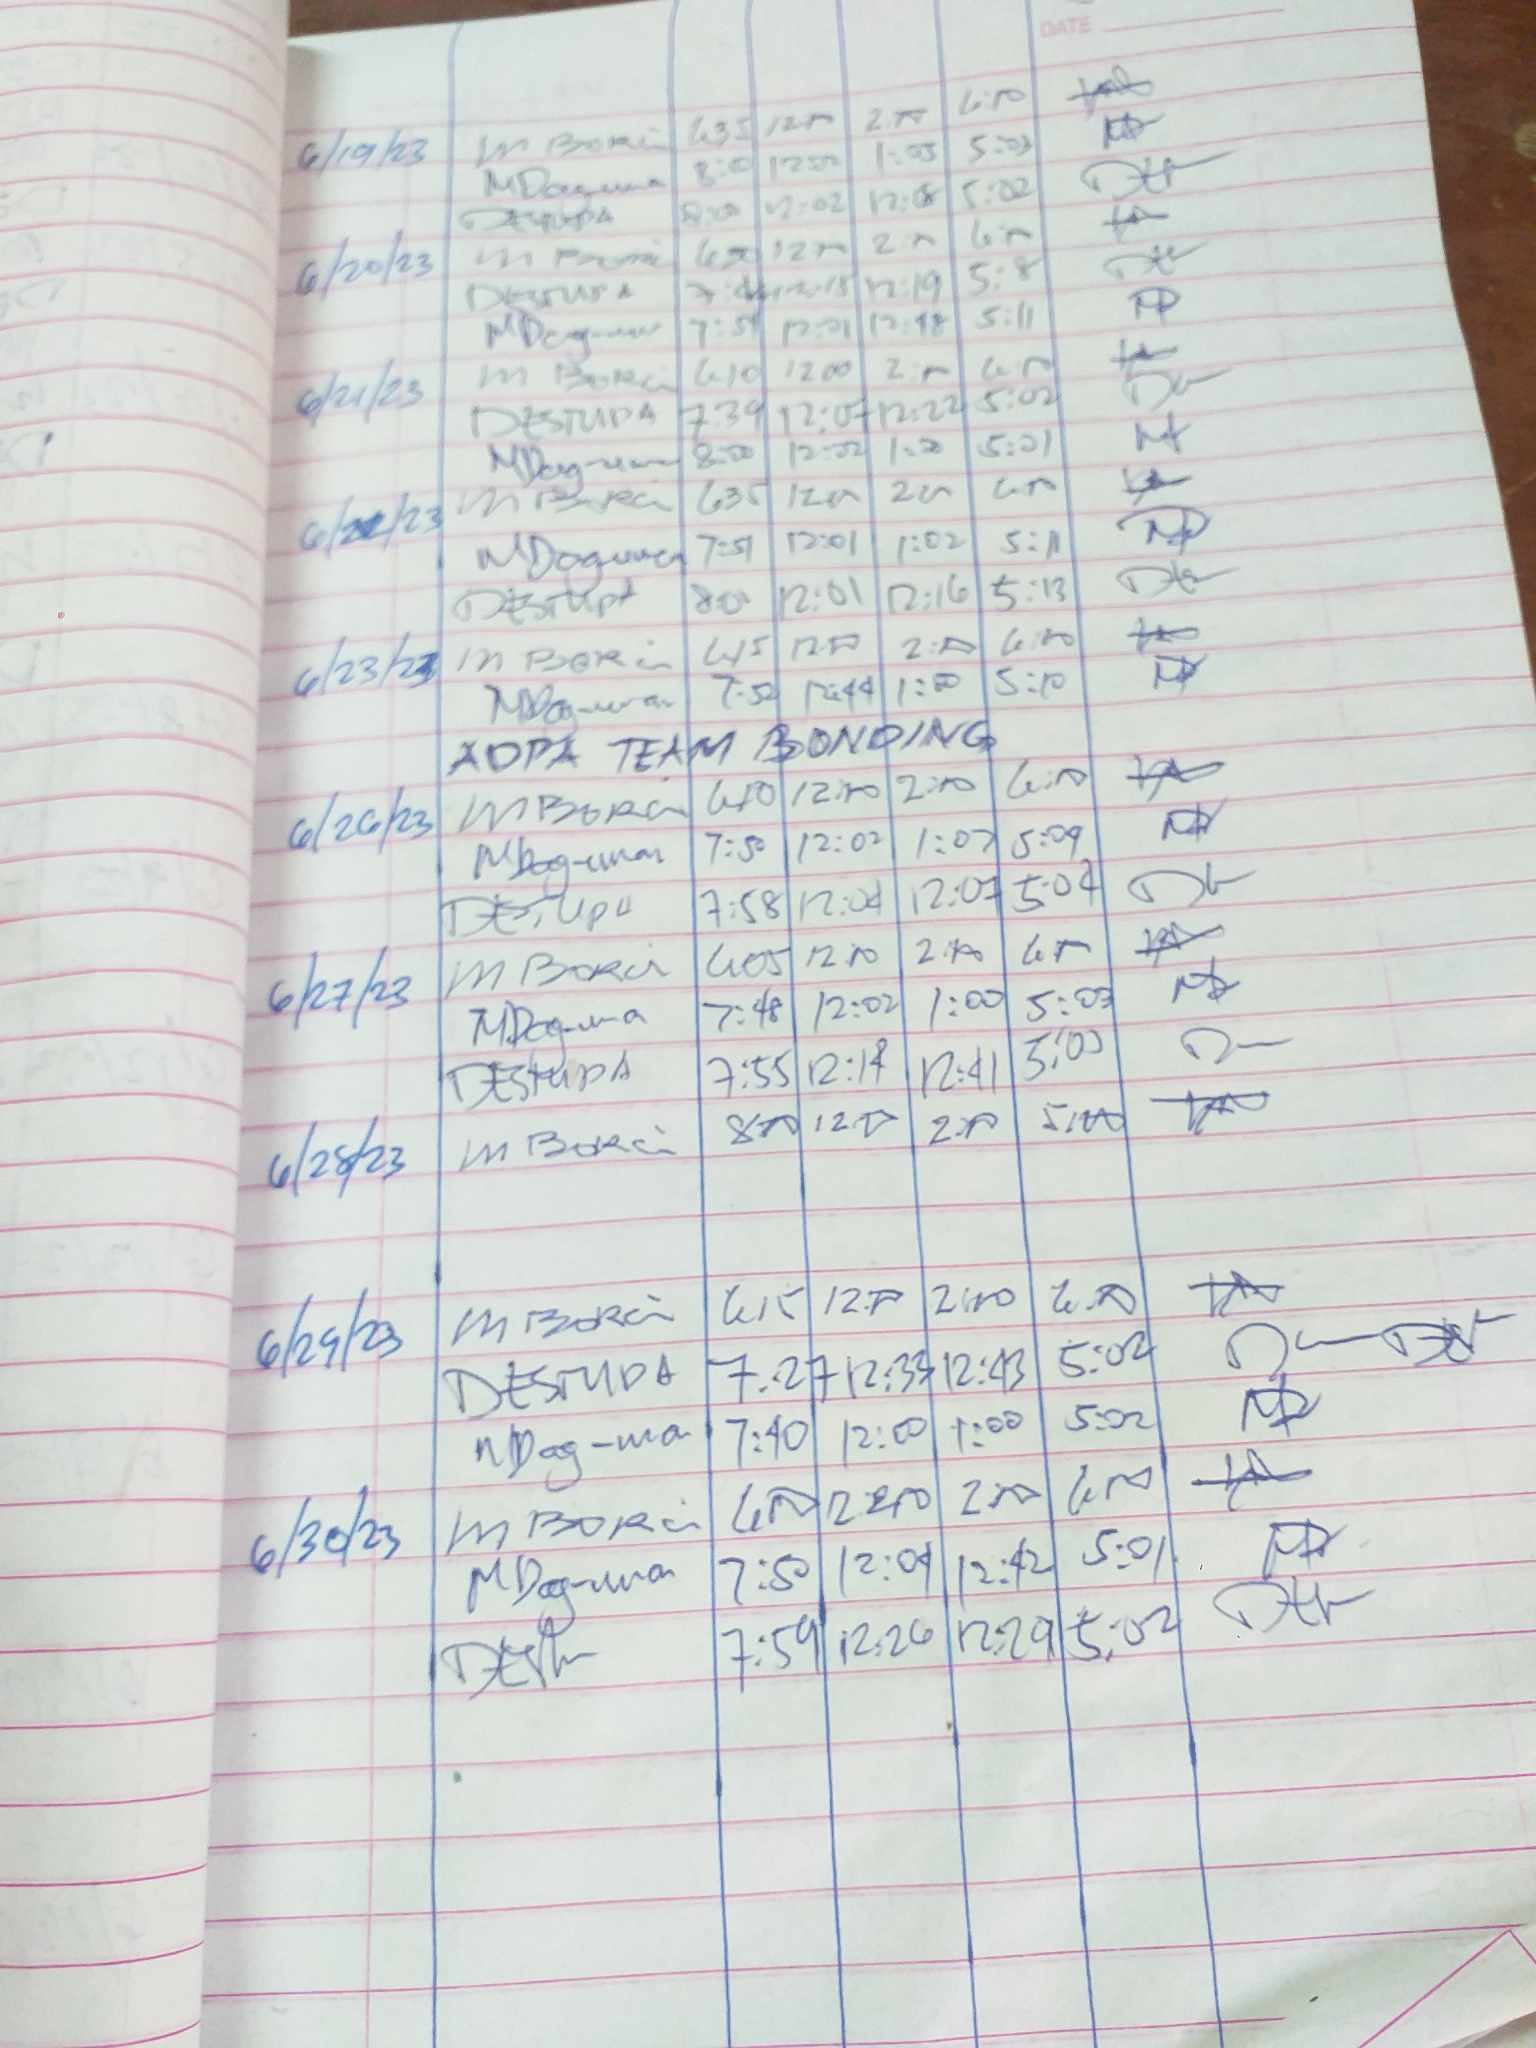 DATE
6/19/23 M Borci 635 12:00 2:00 6:00
MDaguma 8:00 12:00 1:03 5:03
DESTUPA 8:00 12:02 12:08 5:02
6/20/23 M Borci 12:00 2:00 6:00
DESTUPA 12:15 12:19 5:8
MDag-uma 7:51 12:01 12:48 5:11
6/21/23 M Borci 610 1200 2:00 6:00
DESTUPA 7:39 12:07 12:22 5:02
MDag-uma 8:00 12:02 1:00 5:01
6/22/23 M Borci 635 1200 200 6:00
MDag-uma 7:51 12:01 1:02 5:11
DESTUPA 8:00 12:01 12:16 5:13
6/23/23 M Borci 615 12:00 2:00 6:00
MDag-uma 7:50 12:44 1:00 5:10
AOPA TEAM BONDING
6/26/23 M Borci 12:00 2:00 6:00
MDag-uma 7:50 12:02 1:07 5:09
DESTUPA 7:58 12:04 12:07 5:04
6/27/23 M Borci 605 12:00 2:00 6:00
MDag-uma 7:48 12:02 1:00 5:03
DESTUPA 7:55 12:14 12:41 5:03
6/28/23 M Borci 8:00 12:00 2:00 5:00
6/29/23 M Borci 615 12:00 2:00 6:00
DESTUPA 7:27 12:33 12:43 5:02
MDag-uma 7:40 12:00 1:00 5:02
6/30/23 M Borci 6:00 12:00 2:00 6:00
MDag-uma 7:50 12:04 12:42 5:01
7:59 12:26 12:29 5:02